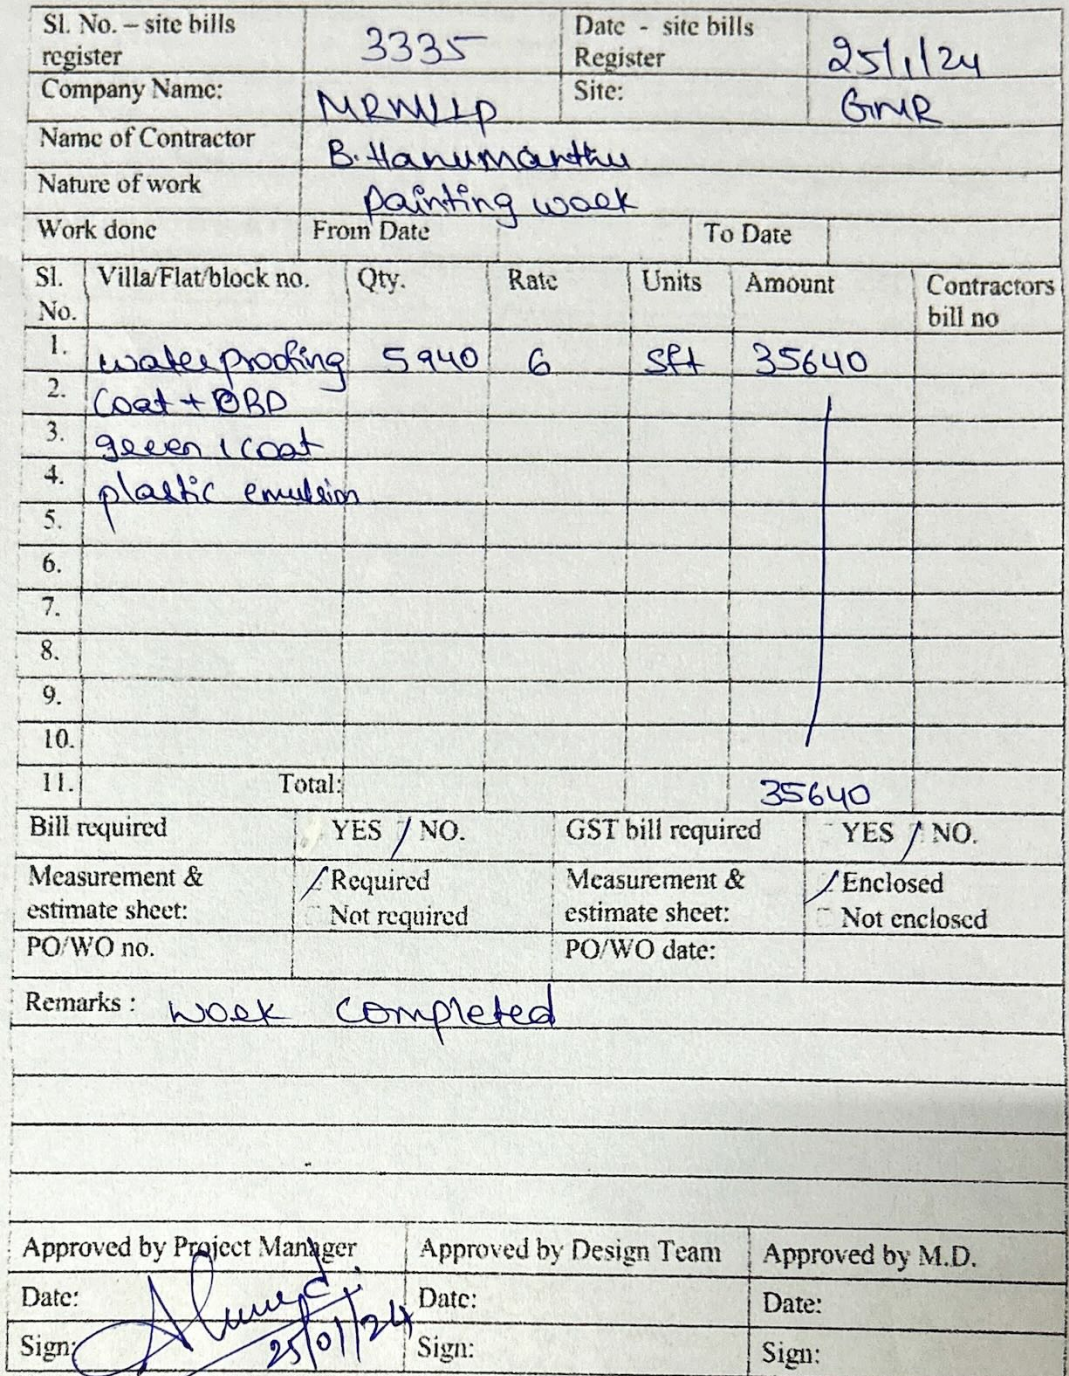 Sl. No. – site bills register 3335 Date - site bills Register 25/1/24
Company Name: MRMLLP Site: GMR
Name of Contractor B. Hanumanthu
Nature of work painting work
Work done From Date To Date
Sl. No. Villa/Flat/block no. Qty. Rate Units Amount Contractors bill no
1. waterproofing 5940 6 sft 35640
2. Coat + OBD
3. green 1 coat
4. plastic emulsion
5.
6.
7.
8.
9.
10.
11. Total: 35640
Bill required YES / NO. GST bill required YES / NO.
Measurement & estimate sheet: Required Not required Measurement & estimate sheet: Enclosed Not enclosed
PO/WO no. PO/WO date:
Remarks : work completed
Approved by Project Manager Approved by Design Team Approved by M.D.
Date: Date: Date:
Sign: 25/01/24 Sign: Sign: